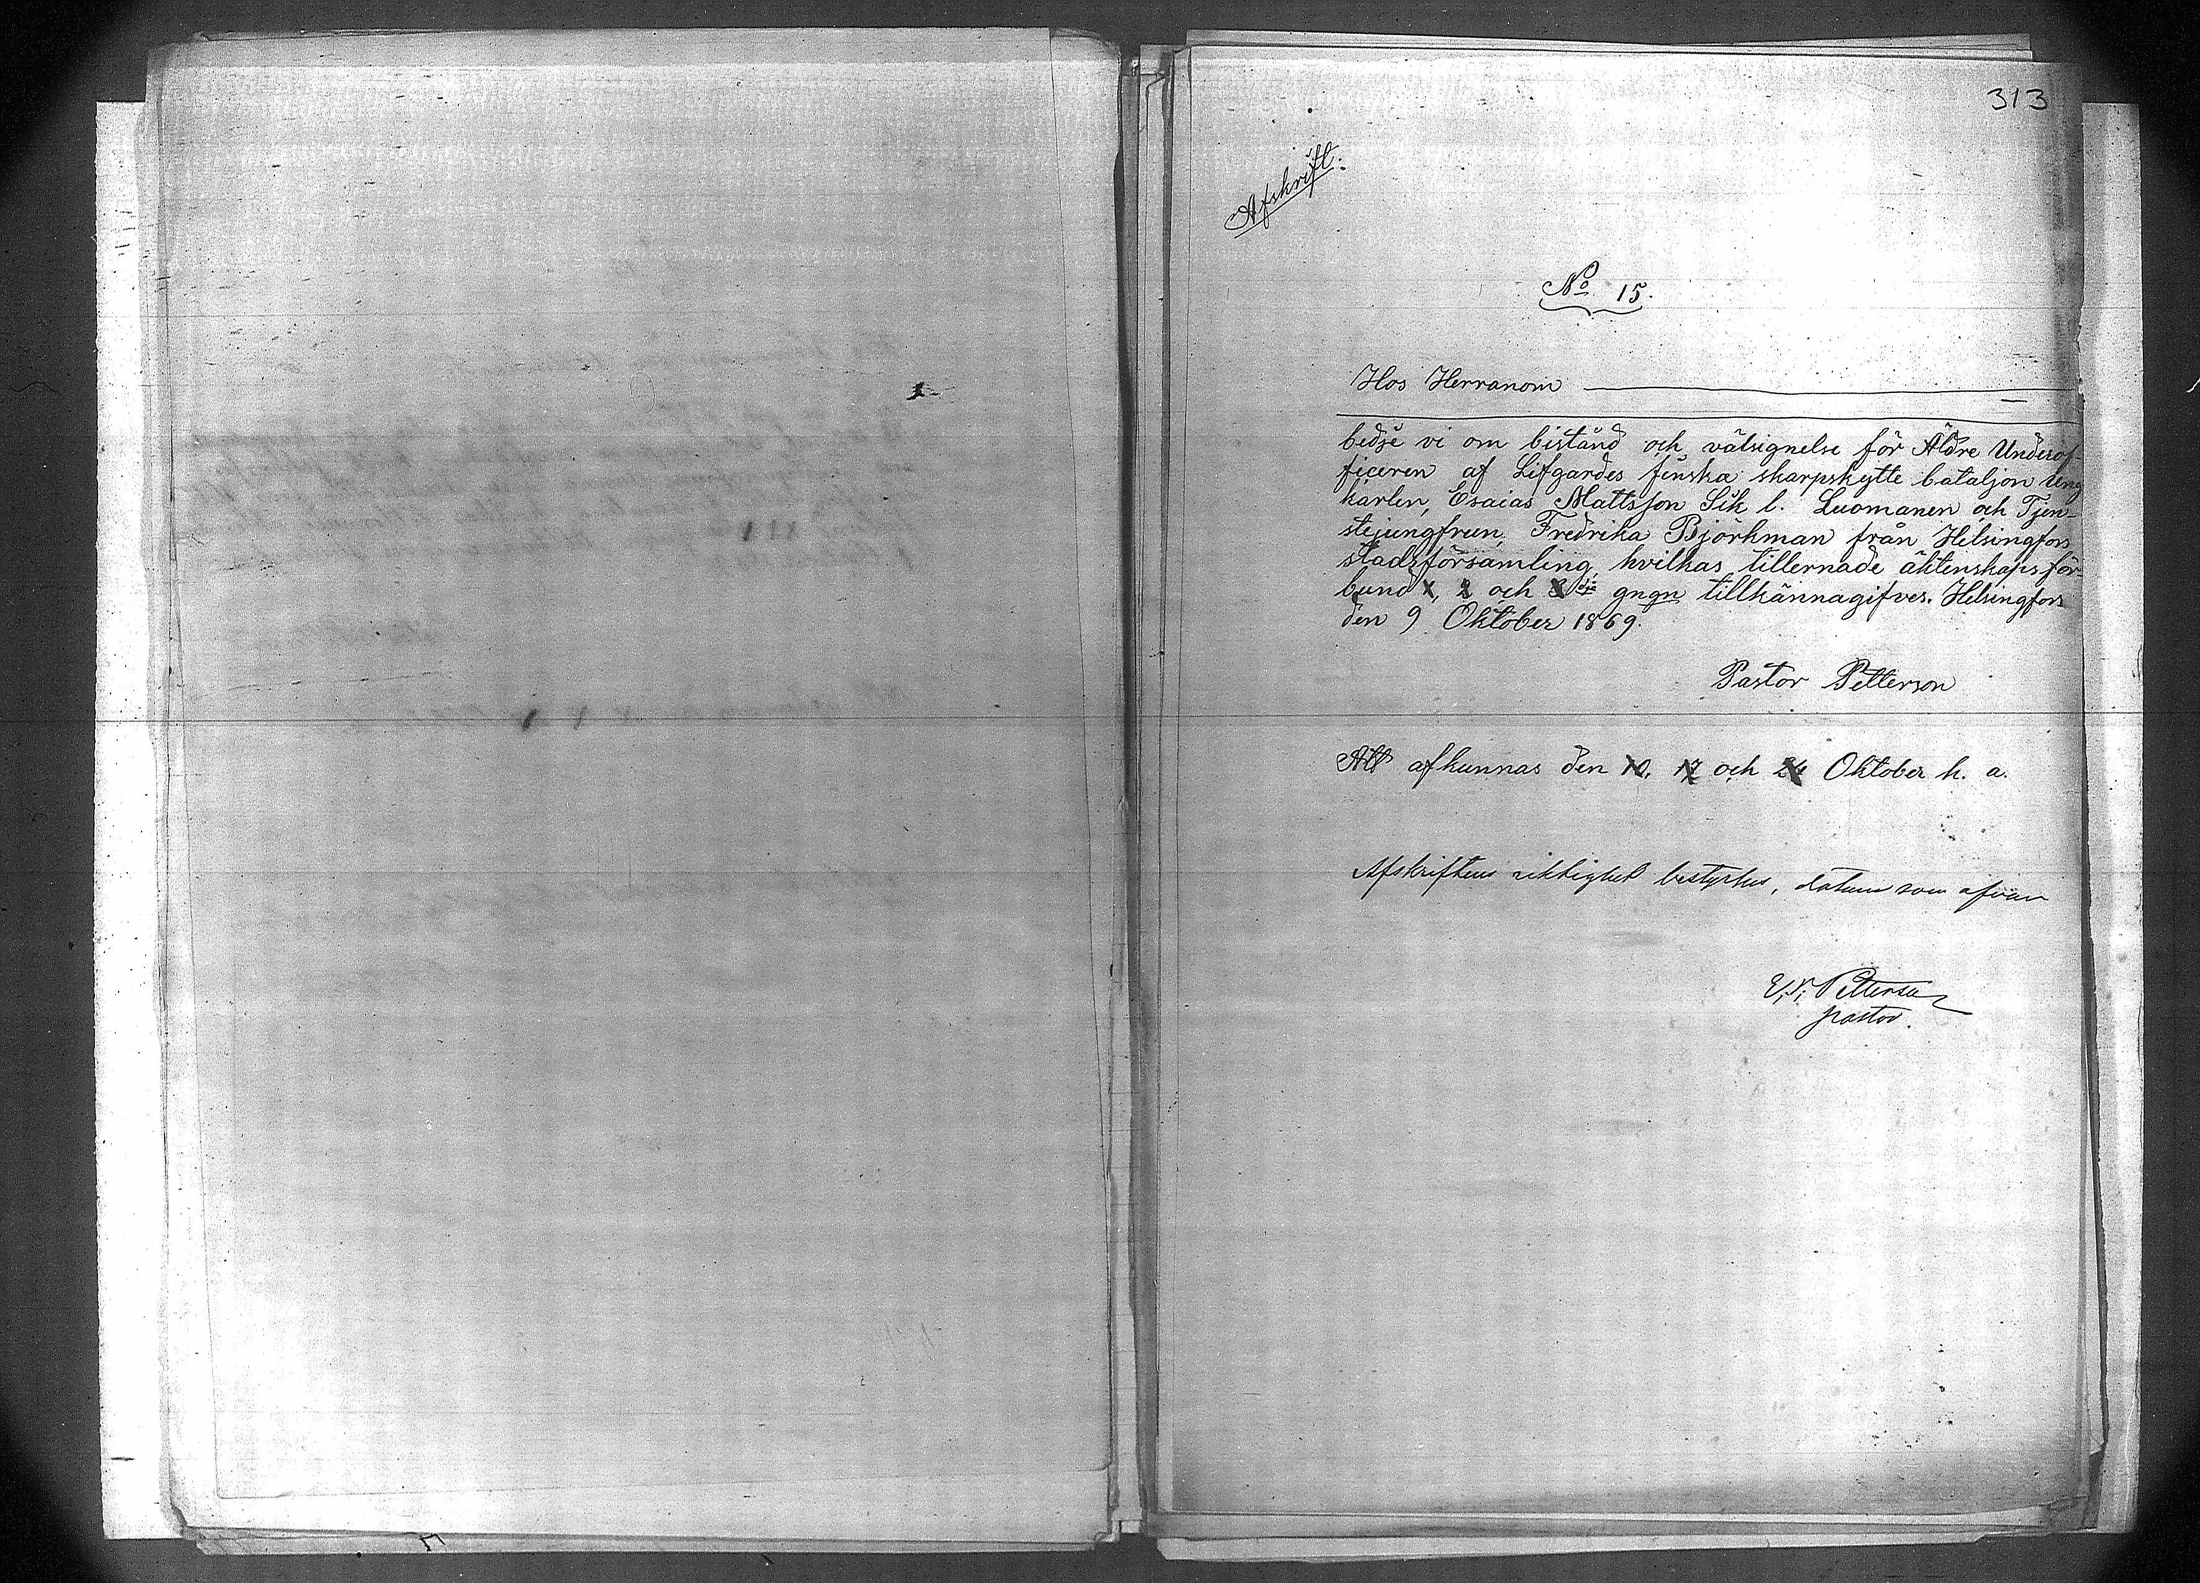 313
Afskrift:
No 15.
Hos Herranom
bedje vi om bistånd och välsignelse för Äldre Underof
ficeren af Lifgardes finska skarpskytte bataljon Ung
karlen, Esaias Mattsson Sik l. Luomanen och Tjen-
stejungfrun, Fredrika Björkman från Helsingfors
stadsförsamling hvilkas tillernade äktenskapsför-
bund 1, 2 och 3dje gngn tillkännagifves. Helsingfors
den 9 Oktober 1869.
Pastor Petterson
Att afkunnas den 10, 17 och 24 Oktober h. a.
Afskriftens riktighet bestyrkes, datum som ofvan
Petterson
pastor.